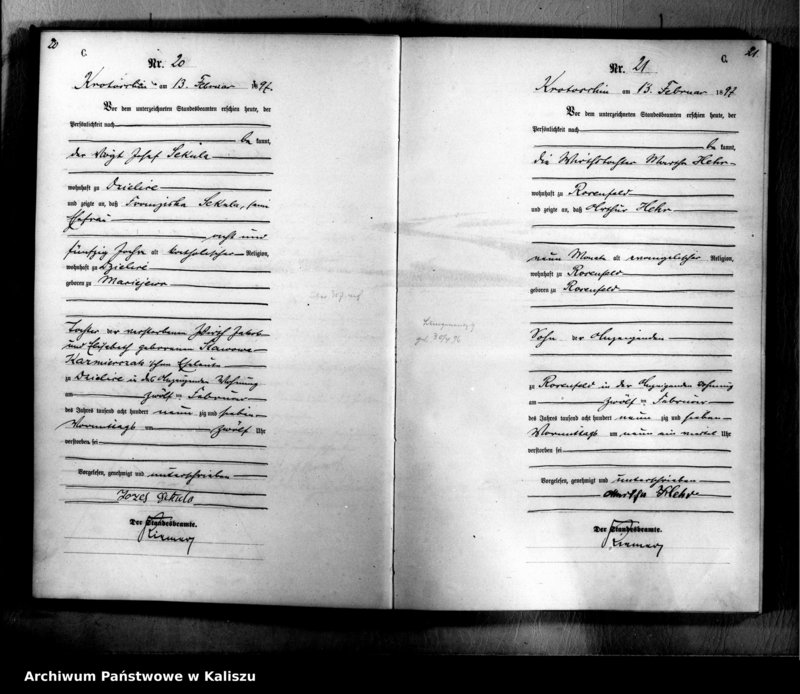 20
C.
Nr. 20
Krotoschin am 13. Februar 1897.
Vor dem unterzeichneten Standesbeamten erschien heute, der
Persönlichkeit nach
be kannt,
der Voigt Josef Sekula
wohnhaft zu
und zeigte an, daß Franziska Sekula, seine
Ehefrau
acht und
fünfzig Jahre alt katholischer Religion,
wohnhaft zu
geboren zu
Tochter der verstorbenen Wirth Jakob
und Elisabeth geborenen
Kazmierczak'schen Eheleute
zu in des Anzeigenden Wohnung
am zwölf ten Februar
des Jahres tausend acht hundert neun zig und sieben
Vormittags um zwölf Uhr
verstorben sei
Vorgelesen, genehmigt und unterschrieben
Jozef Sekula
Der Standesbeamte.
21.
C.
Nr. 21
Krotoschin am 13. Februar 1897
Vor dem unterzeichneten Standesbeamten erschien heute, der
Persönlichkeit nach
be kannt,
die Wirthstochter Martha Hehr
wohnhaft zu Rosenfeld
und zeigte an, daß Arthur Hehr
neun Monate alt evangelischer Religion,
wohnhaft zu Rosenfeld
geboren zu Rosenfeld
Sohn der Anzeigenden
zu Rosenfeld in der Anzeigenden Wohnung
am zwölf ten Februar
des Jahres tausend acht hundert neun zig und sieben
Vormittags um neun ein viertel Uhr
verstorben sei
Vorgelesen, genehmigt und unterschrieben
Martha Hehr
Der Standesbeamte.
Archiwum Państwowe w Kaliszu